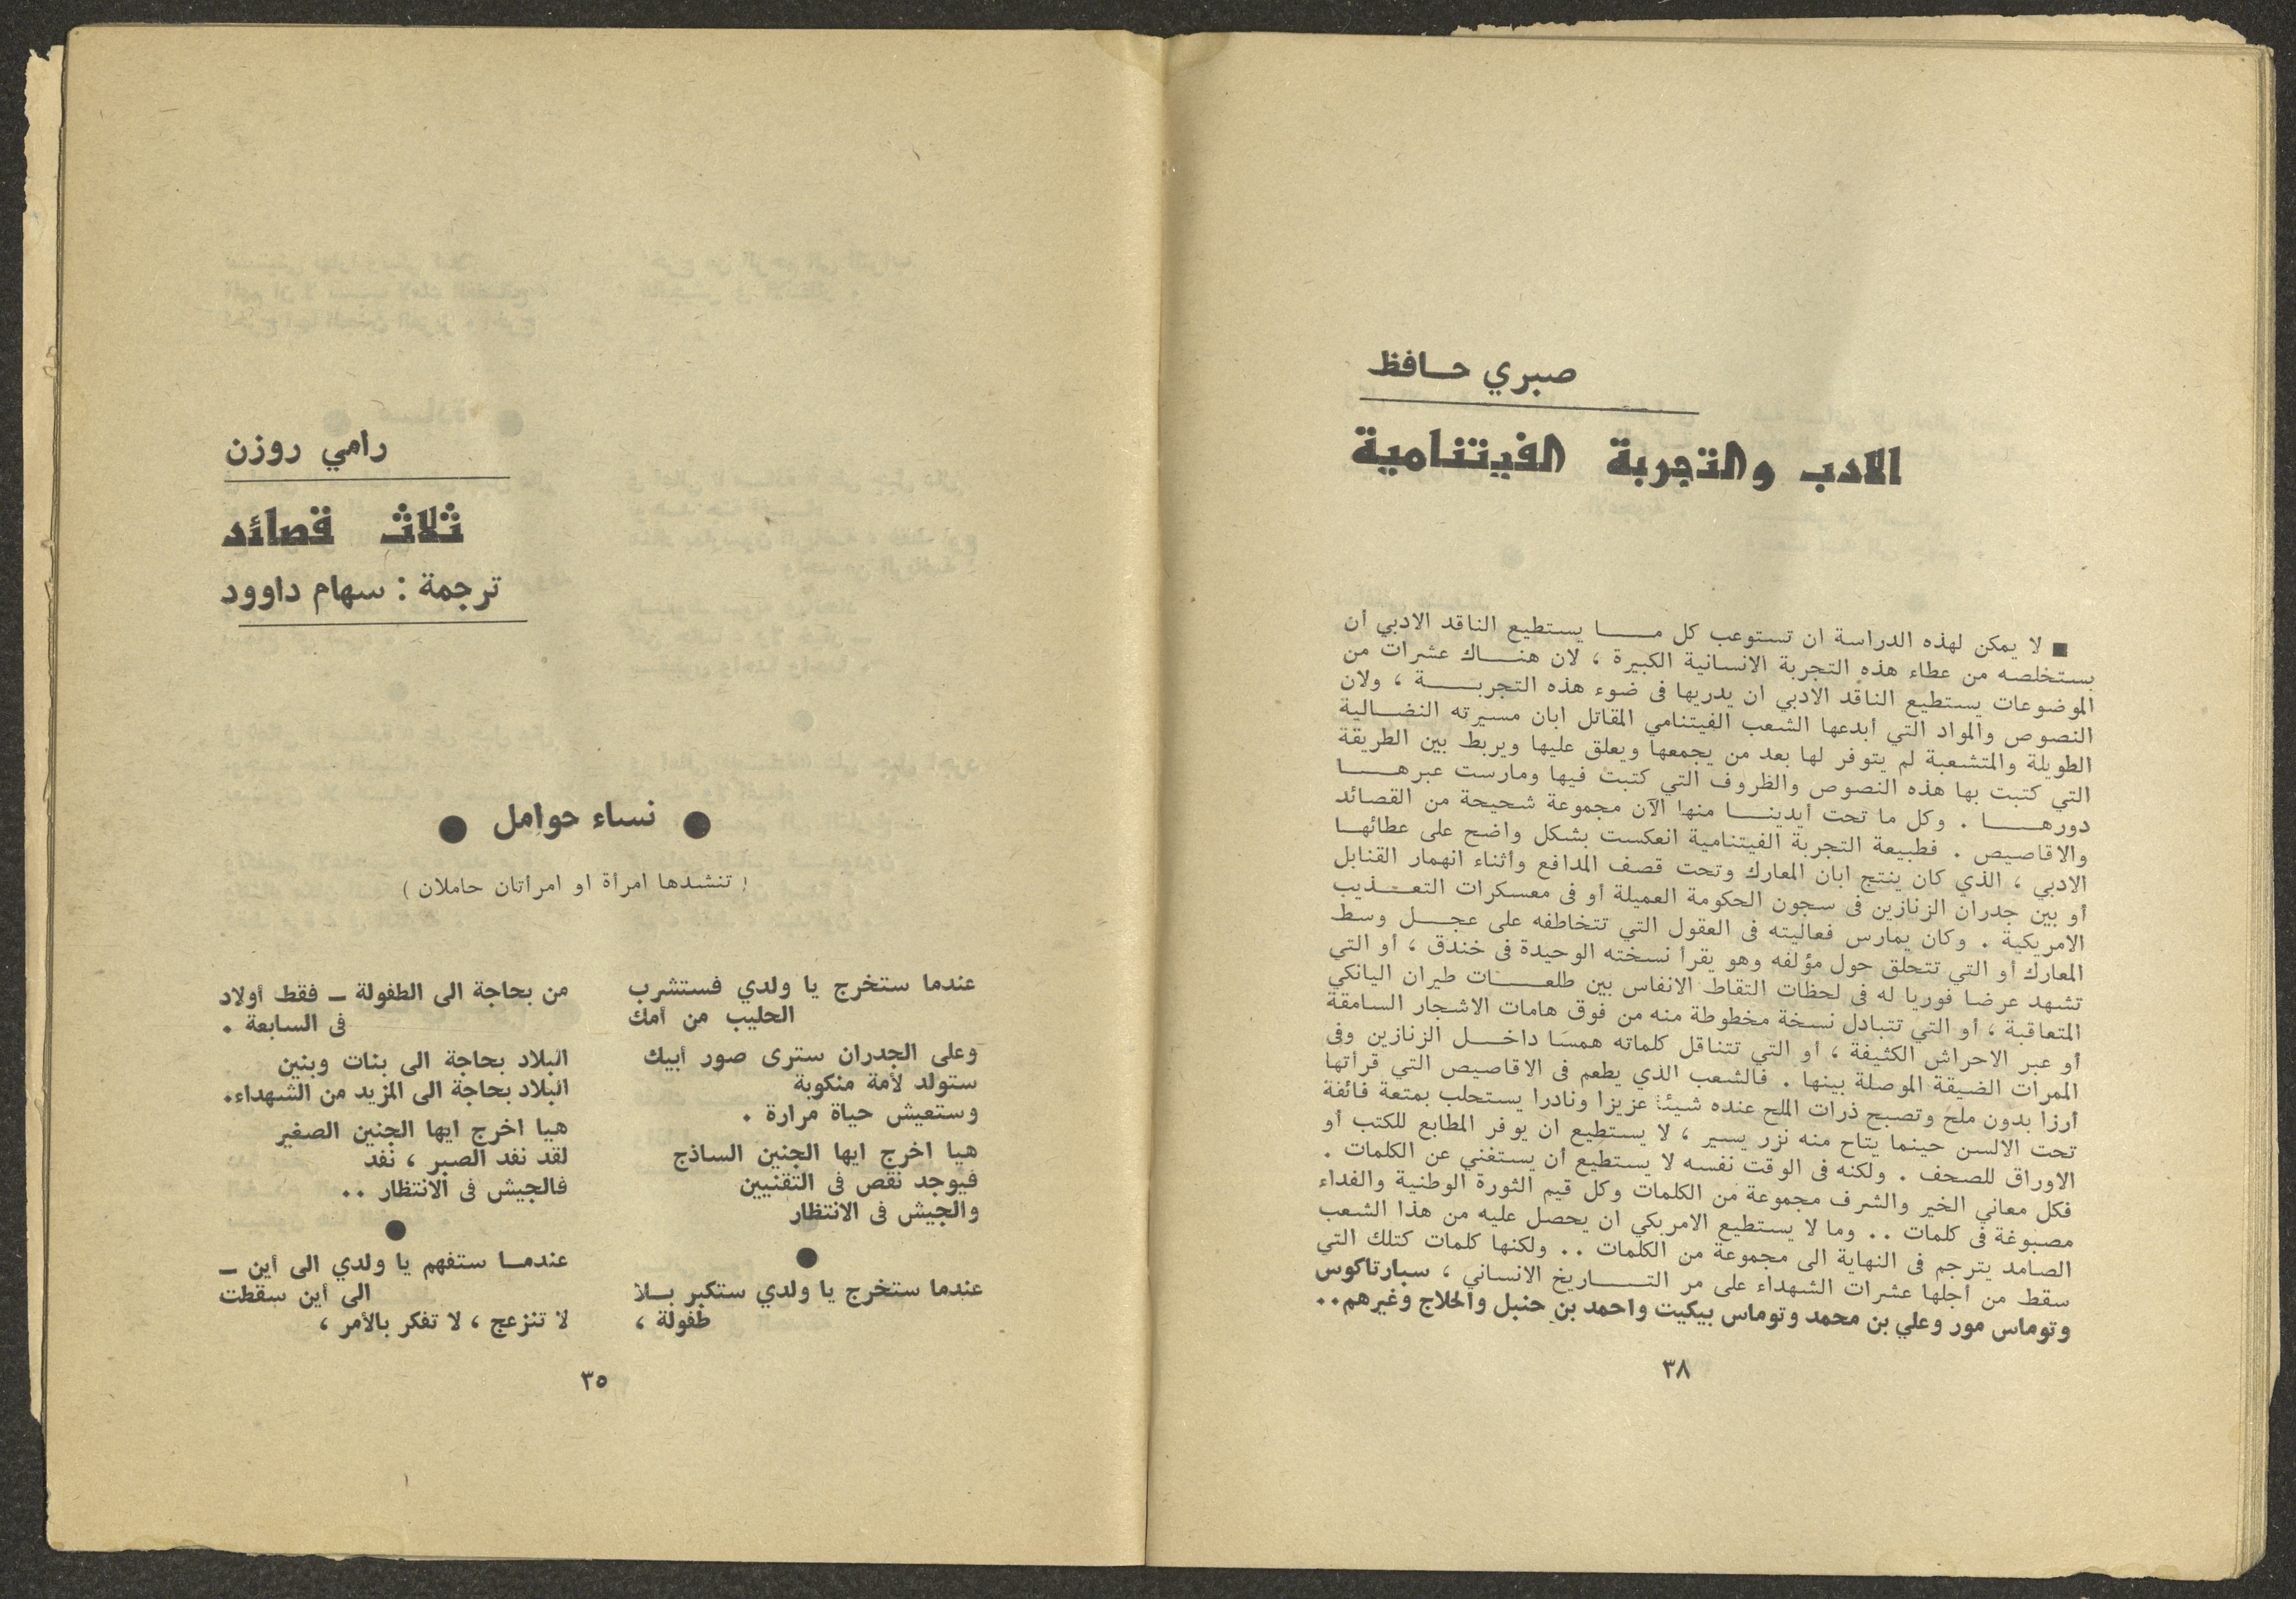 صبري حافظ
الادب والتجربة الفيتنامية
■ لا يمكن لهذه الدراسة ان تستوعب كل ما يستطيع الناقد الادبي أن
يستخلصه من عطاء هذه التجربة الانسانية الكبيرة ، لان هناك عشرات من
الموضوعات يستطيع الناقد الادبي ان يدريها فى ضوء هذه التجربة ، ولان
النصوص والمواد التي أبدعها الشعب الفيتنامي المقاتل ابان مسيرته النضالية
الطويلة والمتشعبة لم يتوفر لها بعد من يجمعها ويعلق عليها ويربط بين الطريقة
التي كتبت بها هذه النصوص والظروف التي كتبت فيها ومارست عبرها
دورها . وكل ما تحت أيدينا منها الآن مجموعة شحيحة من القصائد
والاقاصيص . فطبيعة التجربة الفيتنامية انعكست بشكل واضح على عطائها
الادبي ، الذي كان ينتج ابان المعارك وتحت قصف المدافع وأثناء انهمار القنابل
أو بين جدران الزنازين فى سجون الحكومة العميلة أو فى معسكرات التعذيب
الامريكية . وكان يمارس فعاليته فى العقول التي تتخاطفه على عجل وسط
المعارك أو التي تتحلق حول مؤلفه وهو يقرأ نسخته الوحيدة فى خندق ، أو التي
تشهد عرضا فوريا له فى لحظات التقاط الانفاس بين طلعات طيران اليانكي
المتعاقبة ، أو التي تتبادل نسخة مخطوطة منه من فوق هامات الاشجار السامقة
أو عبر الاحراش الكثيفة ، أو التي تتناقل كلماته همسا داخل الزنازين وفى
الممرات الضيقة الموصلة بينها . فالشعب الذي يطعم فى الاقاصيص التي قرأتها
أرزا بدون ملح وتصبح ذرات الملح عنده شيئا عزيزا ونادرا يستحلب بمتعة فائقة
تحت الالسن حينما يتاح منه نزر يسير ، لا يستطيع ان يوفر المطابع للكتب أو
الاوراق للصحف . ولكنه فى الوقت نفسه لا يستطيع أن يستغني عن الكلمات .
فكل معاني الخير والشرف مجموعة من الكلمات وكل قيم الثورة الوطنية والفداء
مصبوغة فى كلمات .. وما لا يستطيع الامريكي ان يحصل عليه من هذا الشعب
الصامد يترجم فى النهاية الى مجموعة من الكلمات .. ولكنها كلمات كتلك التي
سقط من أجلها عشرات الشهداء على مر التاريخ الانساني ، سبارتاكوس
وتوماس مور وعلي بن محمد وتوماس بيكيت واحمد بن حنبل والحلاج وغيرهم..
٣٨
رامي روزن
ثلاث قصائد
ترجمة : سهام داوود
● نساء حوامل ●
( تنشدها امرأة او امرأتان حاملان )
عندما ستخرج يا ولدي فستشرب
الحليب من أمك
وعلى الجدران سترى صور أبيك
ستولد لأمة منكوبة
وستعيش حياة مرارة .
هيا اخرج ايها الجنين الساذج
فيوجد نقص فى التقنيين
والجيش فى الانتظار
●
عندما ستخرج يا ولدي ستكبر بلا
طفولة ،
من بحاجة الى الطفولة – فقط أولاد
فى السابعة .
البلاد بحاجة الى بنات وبنين
البلاد بحاجة الى المزيد من الشهداء.
هيا اخرج ايها الجنين الصغير
لقد نفد الصبر ، نفد
فالجيش فى الانتظار ..
●
عندما ستفهم يا ولدي الى أين –
الى أين سقطت
لا تنزعج ، لا تفكر بالأمر ،
٣٥